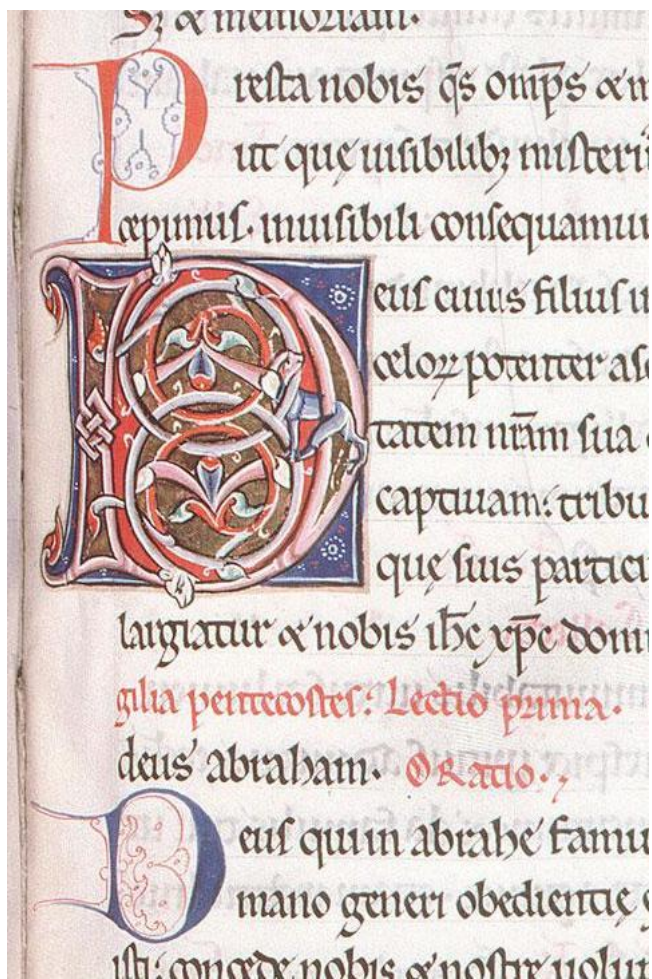 & memoriam.
Presta nobis q̄s omp̄s & m
ut quę uisibilibꝫ misterii
cepimus. inuisibili consequamur
Deus cuius filius i
celoꝝ potenter asc
tatem nr̄am sua
captiuam: tribu
quę suis partici
largiatur & nobis ih̄e xp̄e domi
gilia pentecostes: Lectio prima.
deus abraham. ORatio.
Deus qui in abrahę famu
mano generi obedientię
isti: concede nobis & nostre uolun